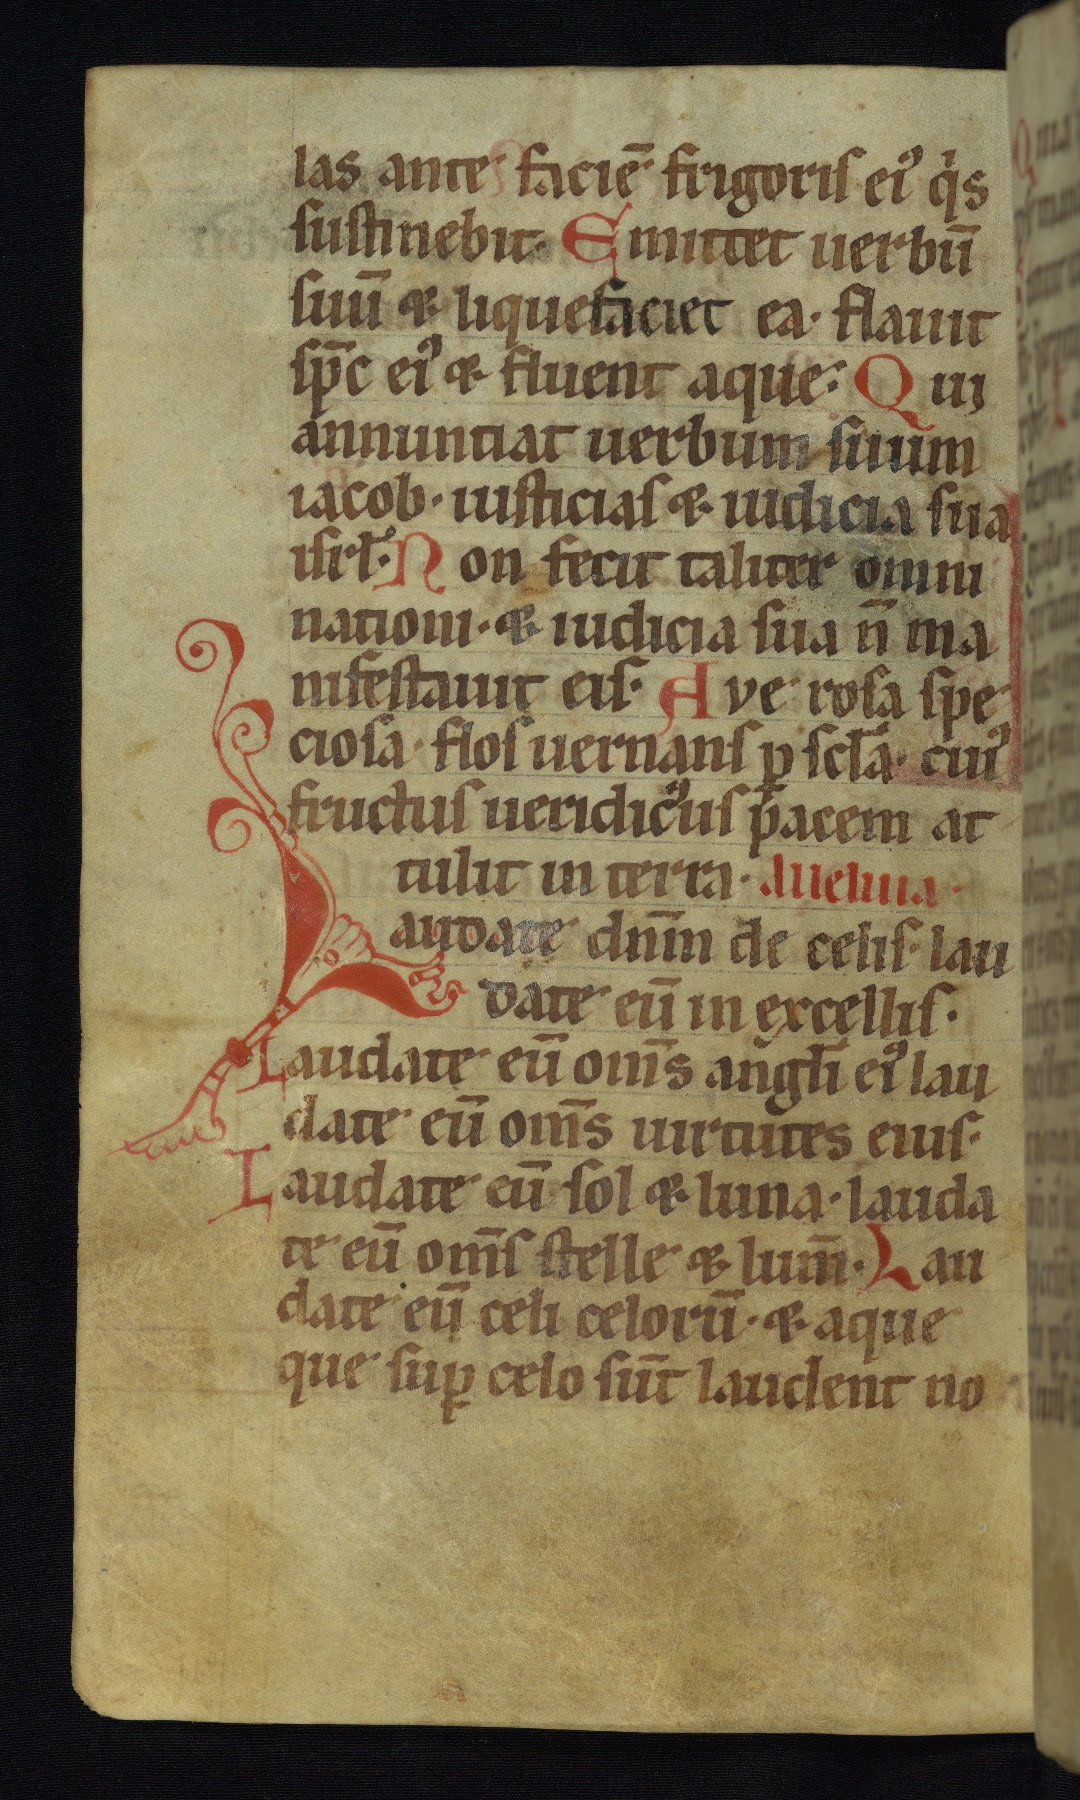 las ante faciē frigoris ei᾽ qͥs
sustinebit· Emittet uerbū
suū ⁊ liquefaciet ea· flauit
sp̄c ei᾽ ⁊ fluent aque· Qui
annuntiat uerbum suum
iacob· iusticias ⁊ iudicia sua
isrł· Non fecit taliter omni
nationi· ⁊ iudicia sua n̄ ma
nifestauit eis· Ave rosa spe
ciosa· flos uernans ꝑ scła· cui᾽
fructus ueridicus pacem at
tulit in terra· alleluia·
Laudate dn̄m de celis· lau
date eū in excellis·
Laudate eū om̄s angłi ei᾽ lau
date eū om̄s uirtutes eius·
Laudate eū sol ⁊ luna· lauda
te eū om̄s stelle ⁊ lum̄· Lau
date eū celi celorū· ⁊ aque
que suꝑ celo sūt laudent no